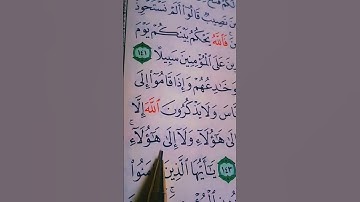 نَصِيبٌ قَالُوٓا۟ أَلَمْ نَسْتَحْوِذْ
فَٱللَّهُ يَحْكُمُ بَيْنَكُمْ يَوْمَ
عَلَى ٱلْمُؤْمِنِينَ سَبِيلًا ١٤١
خَٰدِعُهُمْ وَإِذَا قَامُوٓا۟ إِلَى
وَلَا يَذْكُرُونَ ٱللَّهَ إِلَّا
إِلَىٰ هَٰٓؤُلَآءِ وَلَآ إِلَىٰ هَٰٓؤُلَآءِ ۚ
١٤٣ يَٰٓأَيُّهَا ٱلَّذِينَ ءَامَنُوا۟